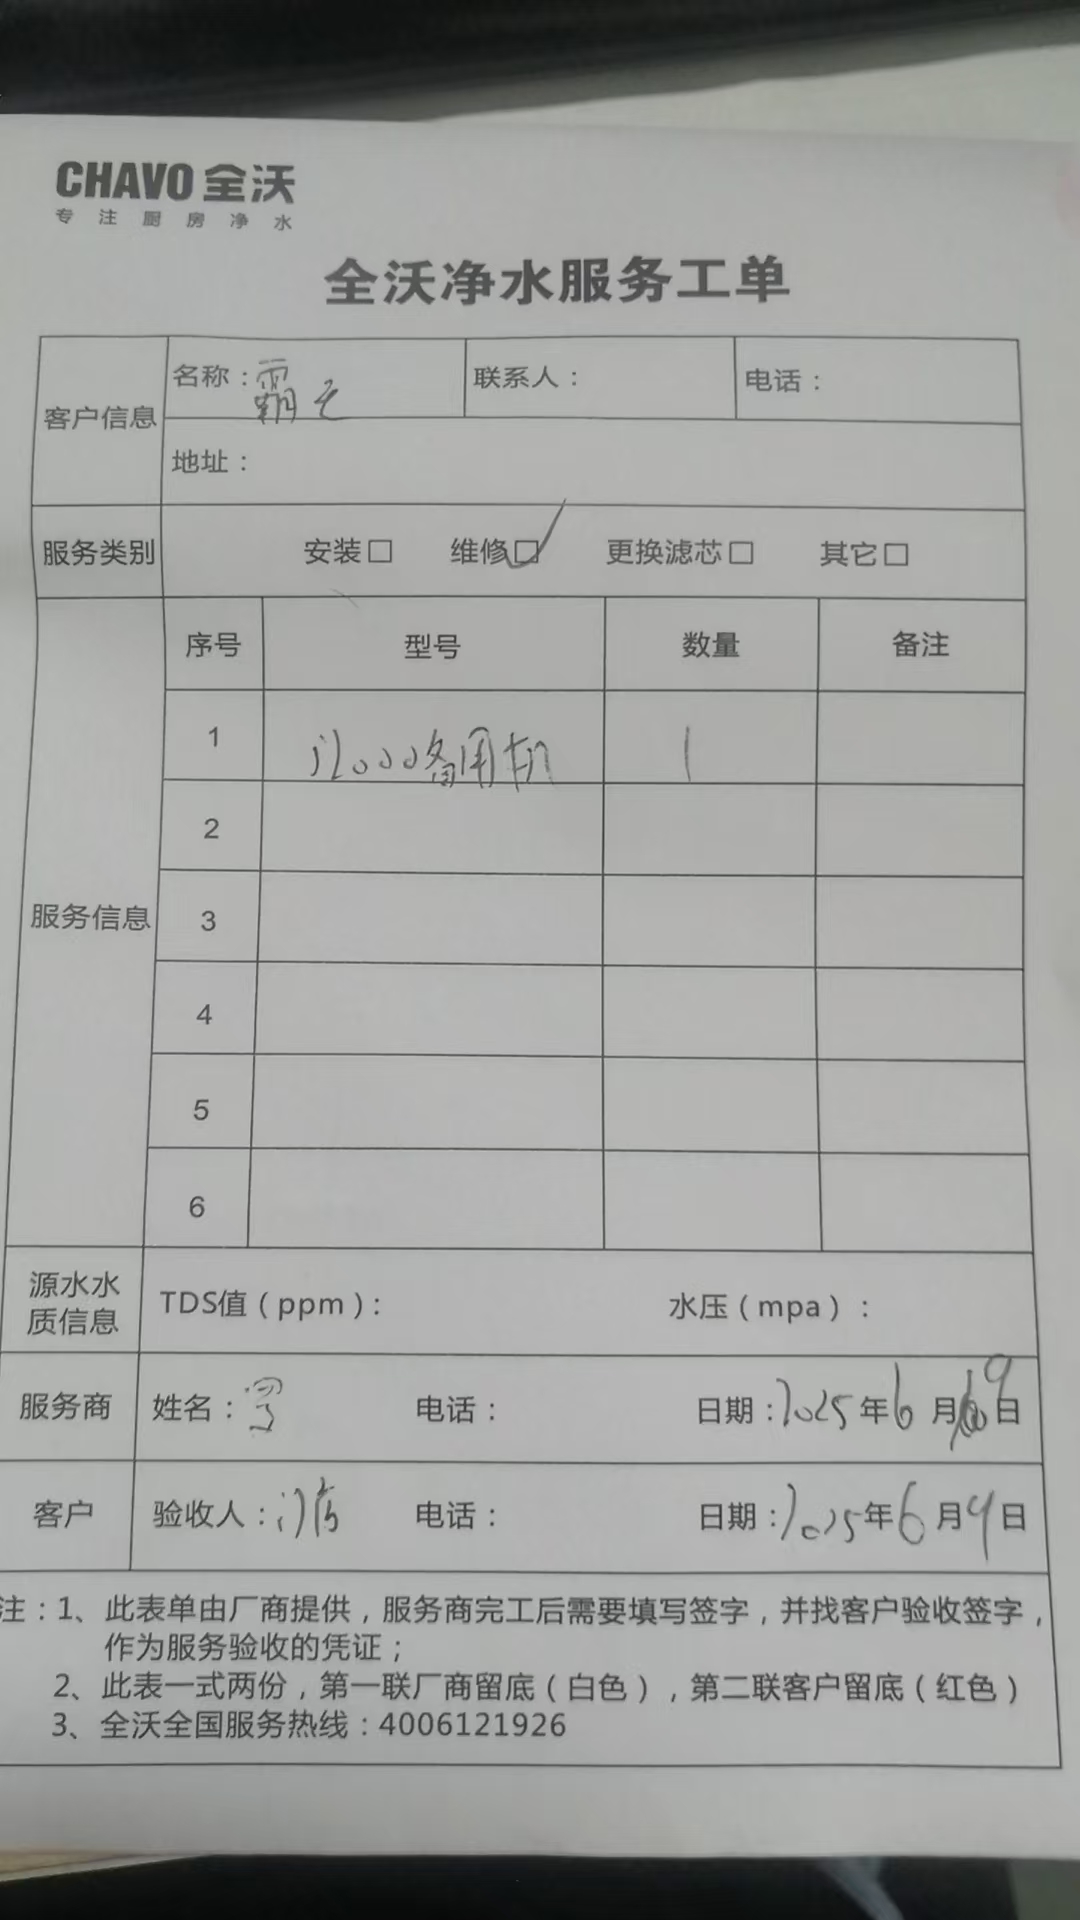 CHAVO 全沃
专注厨房净水
全沃净水服务工单
客户信息 名称：霸 联系人： 电话：
地址：
服务类别 安装□ 维修□ 更换滤芯□ 其它□
服务信息 序号 型号 数量 备注
1 备用机 1
2
3
4
5
6
源水水质信息 TDS值（ppm）： 水压（mpa）：
服务商 姓名： 电话： 日期：2025年6月9日
客户 验收人： 电话： 日期：2025年6月9日
注：1、此表单由厂商提供，服务商完工后需要填写签字，并找客户验收签字，
作为服务验收的凭证；
2、此表一式两份，第一联厂商留底（白色），第二联客户留底（红色）
3、全沃全国服务热线：4006121926